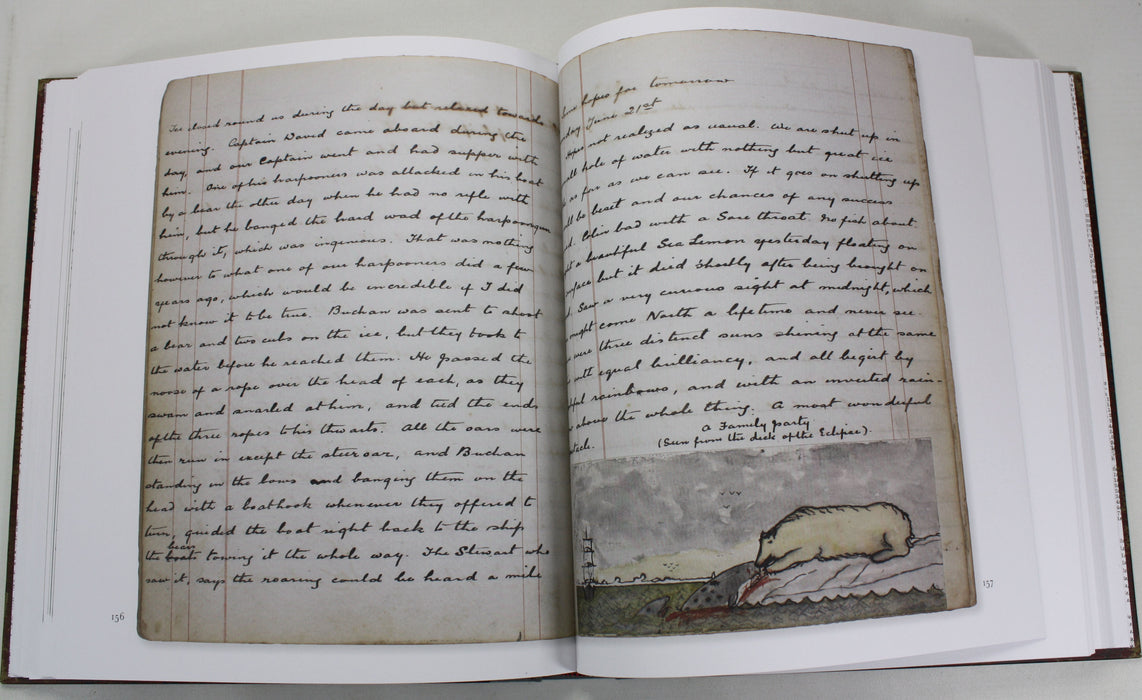 Ice closed round us during the day but relaxed towards
evening. Captain David came aboard during the
day, and our Captain went and had supper with
him. One of his harpooners was attacked in his boat
by a bear the other day when he had no rifle with
him, but he banged the hard wad of the harpoongun
through it, which was ingenious. That was nothing
however to what one of our harpooners did a few
years ago, which would be incredible if I did
not know it to be true. Buchan was sent to shoot
a bear and two cubs on the ice, but they took to
the water before he reached them. He passed the
noose of a rope over the head of each, as they
swam and snarled at him, and tied the ends
of the three ropes to his thwarts. All the oars were
then run in except the steeroar, and Buchan
standing in the bows and banging them on the
head with a boathook whenever they offered to
turn, guided the boat right back to the ship
bears
the boats towing it the whole way. The Stewart who
saw it, says the roaring could be heard a mile
156
hopes for tomorrow
June 21st
Hopes not realized as usual. We are shut up in
hole of water with nothing but great ice
as far as we can see. If it goes on shutting up
be beset and our chances of any success
Colin bad with a Sore throat. No fish about.
a beautiful Sea Lemon yesterday floating on
but it died shortly after being brought on
Saw a very curious sight at midnight, which
might come North a lifetime and never see.
were three distinct suns shining at the same
with equal brilliancy, and all begirt by
rainbows, and with an inverted rain-
above the whole thing. A most wonderful
a Family party
(Seen from the deck of the Eclipse).
157